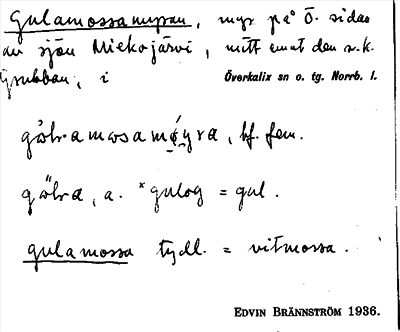 Gulamossamyran, myr på Ö. sidan
av sjön Miekojärvi, mitt emot den s.k.
Grubban, i Överkalix sn o. tg. Norrb. l.
gålramosamǿyra, bf. fem.
gålra, a. *gulog = gul.
gulamossa tydl. = vitmossa.
EDVIN BRÄNNSTRÖM 1936.